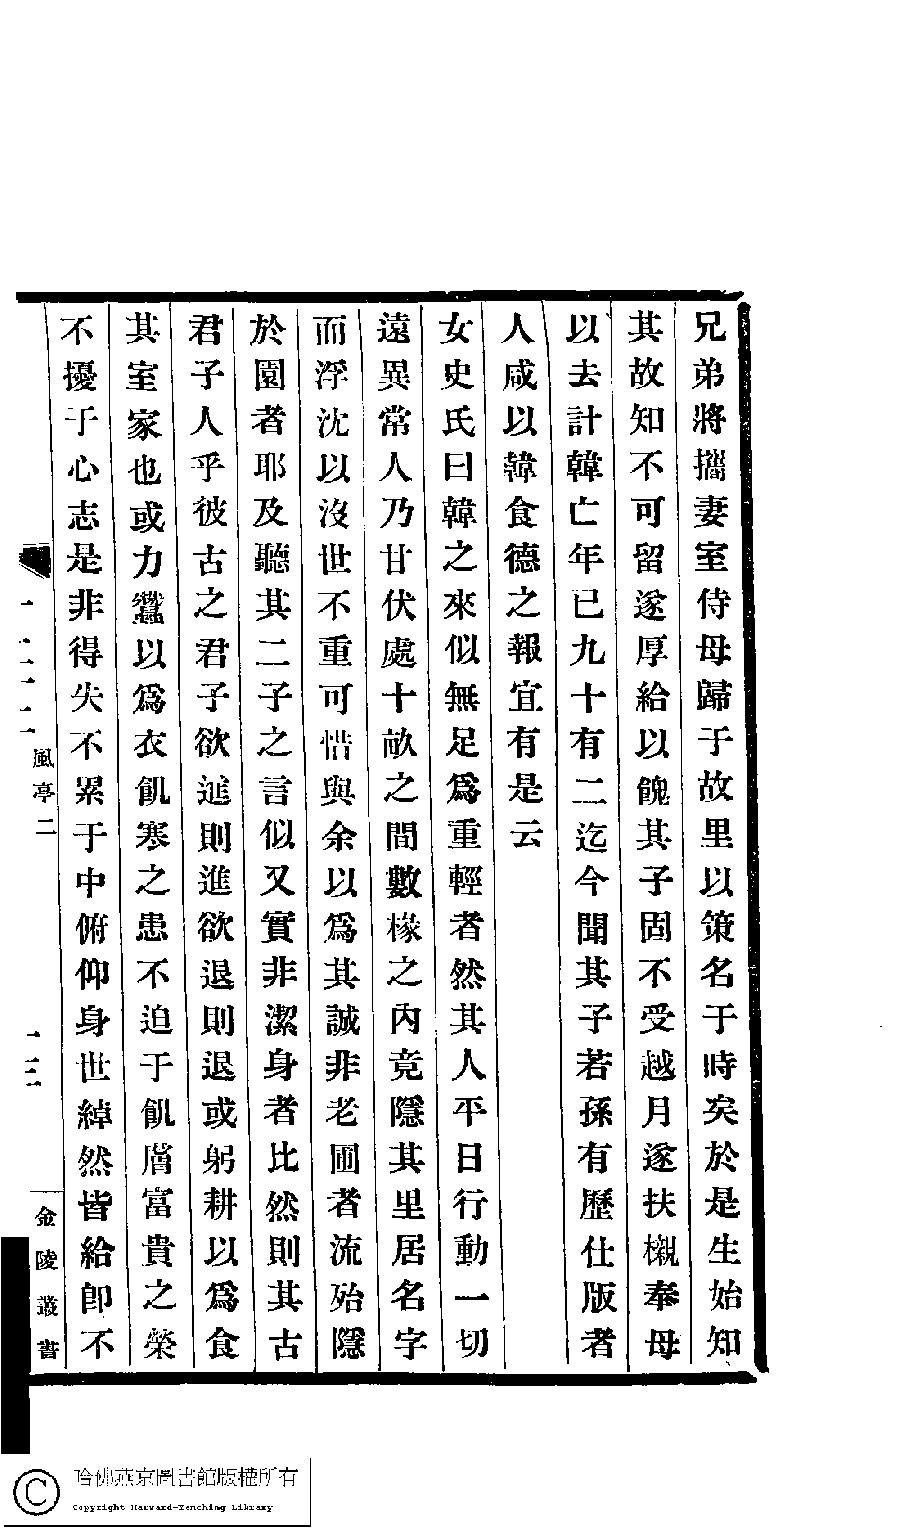 兄弟將攜妻室侍母歸于故里以策名于時矣於是生始知
其故知不可留遂厚給以餽其子固不受越月遂扶櫬奉母
以去計韓亡年已九十有二迄今聞其子若孫有歷仕版者
人咸以韓食德之報宜有是云
女史氏曰韓之來似無足爲重輕者然其人平日行動一切
遠異常人乃甘伏處十畝之間數椽之內竟隱其里居名字
而浮沈以沒世不重可惜與余以爲其誠非老圃者流殆隱
於園者耶及聽其二子之言似又實非潔身者比然則其古
君子人乎彼古之君子欲進則進欲退則退或躬耕以爲食
其室家也或力蠶以爲衣飢寒之患不迫于飢膚富貴之榮
不擾于心志是非得失不累于中俯仰身世綽然皆給卽不
風亭二
金陵叢書
哈佛燕京圖書館版權所有
Copyright Harvard-Yenching Library